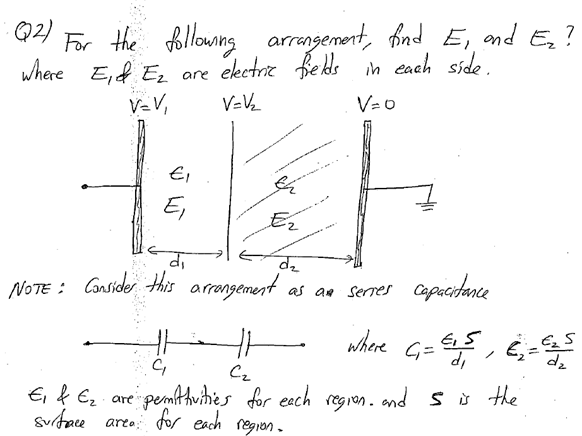 Q2) For the following arrangement, find E₁ and E₂?
where E₁ & E₂ are electric fields in each side.
V=V₁ V=V₂ V=0
ϵ₁ ϵ₂
E₁ E₂
d₁ d₂
NOTE: Consider this arrangement as an series capacitance
where C₁ = ϵ₁S/d₁ , C₂ = ϵ₂S/d₂
C₁ C₂
ϵ₁ & ϵ₂ are permittivities for each region. and S is the
surface area for each region.